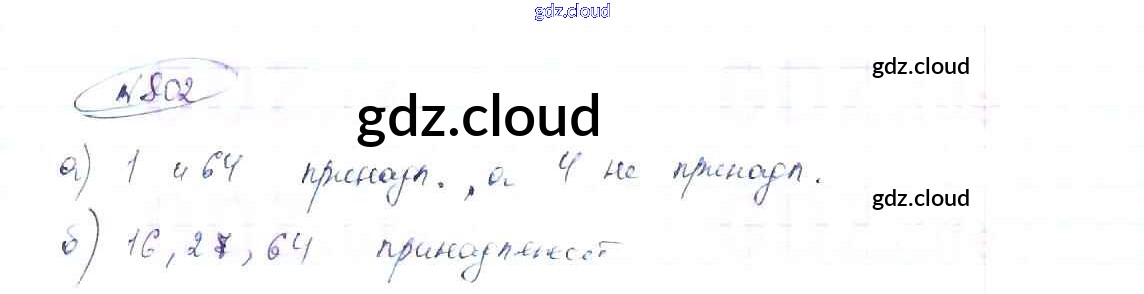 gdz.cloud
gdz.cloud
№802
gdz.cloud
а) 1 и 64 принадл., а 4 не принадл.
gdz.cloud
б) 16, 27, 64 принадлежат